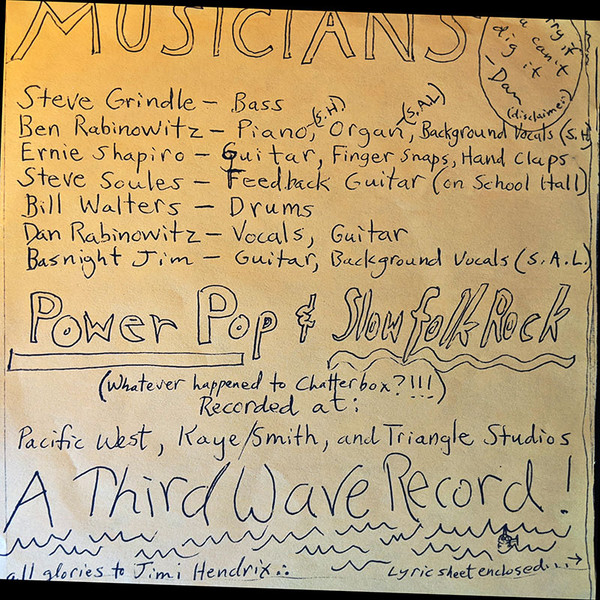 MUSICIANS
can't
dig it
-Dan
(disclaimer)
Steve Grindle - Bass
(S.H) (S.A.L)
Ben Rabinowitz - Piano, Organ, Background Vocals (S.H)
Ernie Shapiro - Guitar, Finger Snaps, Hand Claps
Steve Soules - Feedback Guitar (on School Hall)
Bill Walters - Drums
Dan Rabinowitz - Vocals, Guitar
Basnight Jim - Guitar, Background Vocals (S.A.L.)
Power Pop & Slow folk Rock
(Whatever happened to Chatterbox?!!!)
Recorded at:
Pacific West, Kaye/Smith, and Triangle Studios
A Third Wave Record!
all glories to Jimi Hendrix..
Lyric sheet enclosed...→